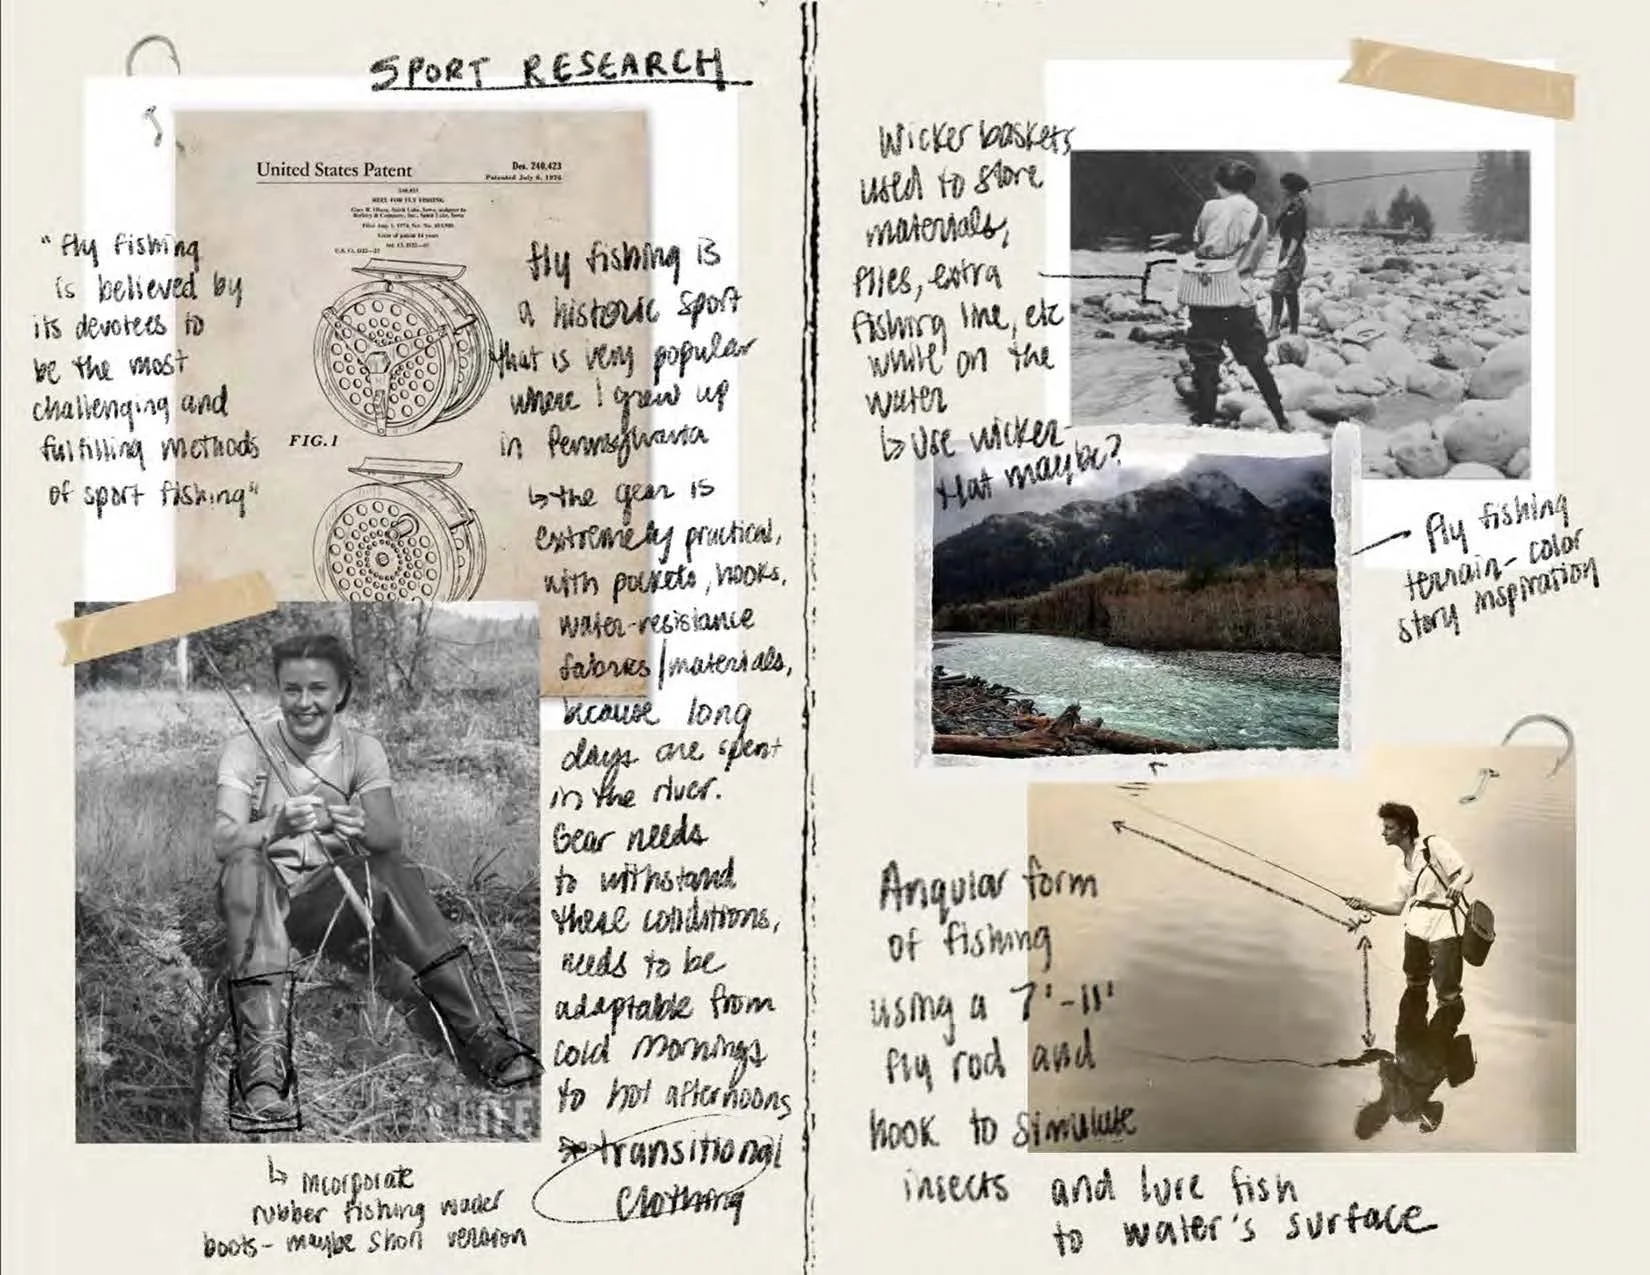 SPORT RESEARCH
United States Patent
Des. 240,423
Patented July 6, 1976
240,423
REEL FOR FLY FISHING
Filed Aug. 1, 1974, Ser. No.
Term of patent 14 years
FIG. 1
"fly fishing
is believed by
its devotees to
be the most
challenging and
fulfilling methods
of sport fishing"
fly fishing is
a historic sport
that is very popular
where I grew up
in Pennsylvania
↳ the gear is
extremely practical,
with pockets, hooks,
water-resistance
fabrics/materials,
because long
days are spent
in the river.
Gear needs
to withstand
these conditions,
needs to be
adaptable from
cold mornings
to hot afternoons
transitional
clothing
LIFE
↳ incorporate
rubber fishing wader
boots - maybe short version
Wicker baskets
used to store
materials,
flies, extra
fishing line, etc
while on the
water
↳ Use wicker-
Hat maybe?
fly fishing
terrain - color
story inspiration
Angular form
of fishing
using a 7'-11'
fly rod and
hook to simulate
insects and lure fish
to water's surface